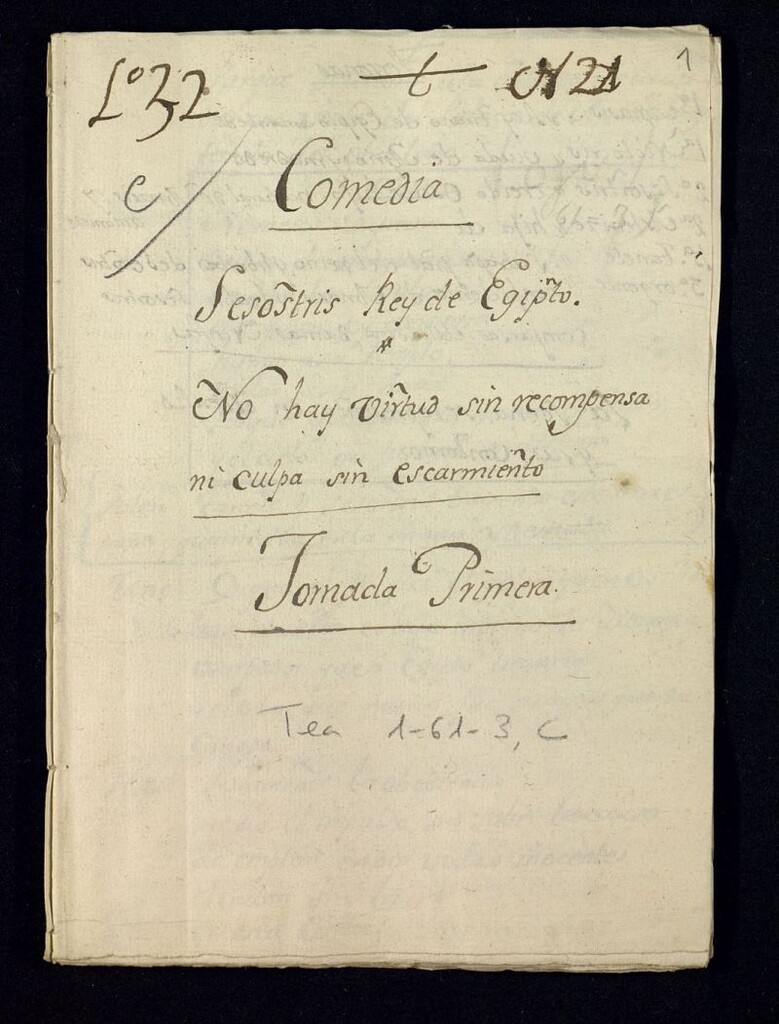 Lº 32 t N 21 1
C
Comedia
Sesostris Rey de Egipto.
No hay virtud sin recompensa
ni culpa sin escarmiento
Jornada Primera.
Tea 1-61-3, C